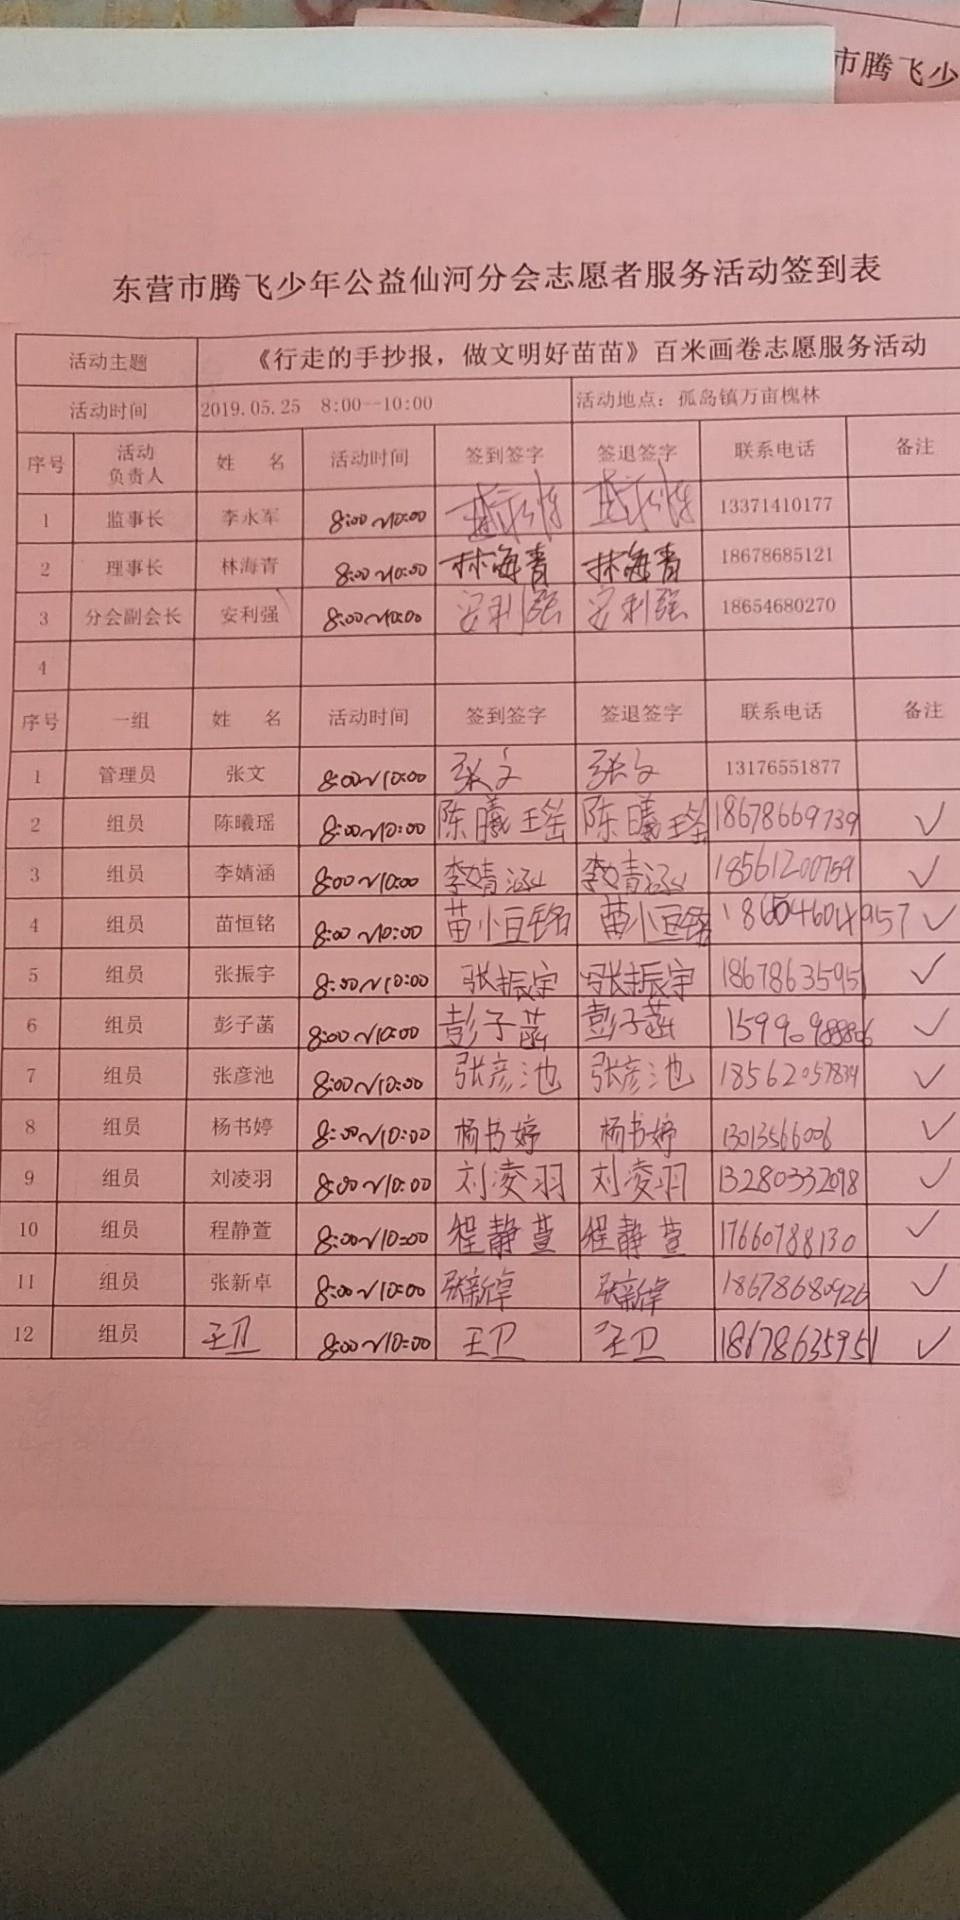 市腾飞少
东营市腾飞少年公益仙河分会志愿者服务活动签到表
活动主题 《行走的手抄报，做文明好苗苗》百米画卷志愿服务活动
活动时间 2019.05.25 8:00--10:00 活动地点：孤岛镇万亩槐林
序号 活动负责人 姓 名 活动时间 签到签字 签退签字 联系电话 备注
1 监事长 李永军 8:00~10:00 13371410177
2 理事长 林海青 8:00~10:00 林海青 林海青 18678685121
3 分会副会长 安利强 8:00~10:00 安利强 安利强 18654680270
4
序号 一组 姓 名 活动时间 签到签字 签退签字 联系电话 备注
1 管理员 张文 8:00~10:00 张文 张文 13176551877
2 组员 陈曦瑶 8:00~10:00 陈曦瑶 陈曦瑶 18678669739 ✓
3 组员 李婧涵 8:00~10:00 李婧涵 李婧涵 18561200759 ✓
4 组员 苗恒铭 8:00~10:00 苗恒铭 苗恒铭 ✓
5 组员 张振宇 8:00~10:00 张振宇 张振宇 18678635951 ✓
6 组员 彭子菡 8:00~10:00 彭子菡 彭子菡 ✓
7 组员 张彦池 8:00~10:00 张彦池 张彦池 ✓
8 组员 杨书婷 8:00~10:00 杨书婷 杨书婷 13013566006 ✓
9 组员 刘凌羽 8:00~10:00 刘凌羽 刘凌羽 13280332098 ✓
10 组员 程静萱 8:00~10:00 程静萱 程静萱 17660788130 ✓
11 组员 张新卓 8:00~10:00 张新卓 张新卓 18678680926 ✓
12 组员 王卫 8:00~10:00 王卫 王卫 18678635951 ✓